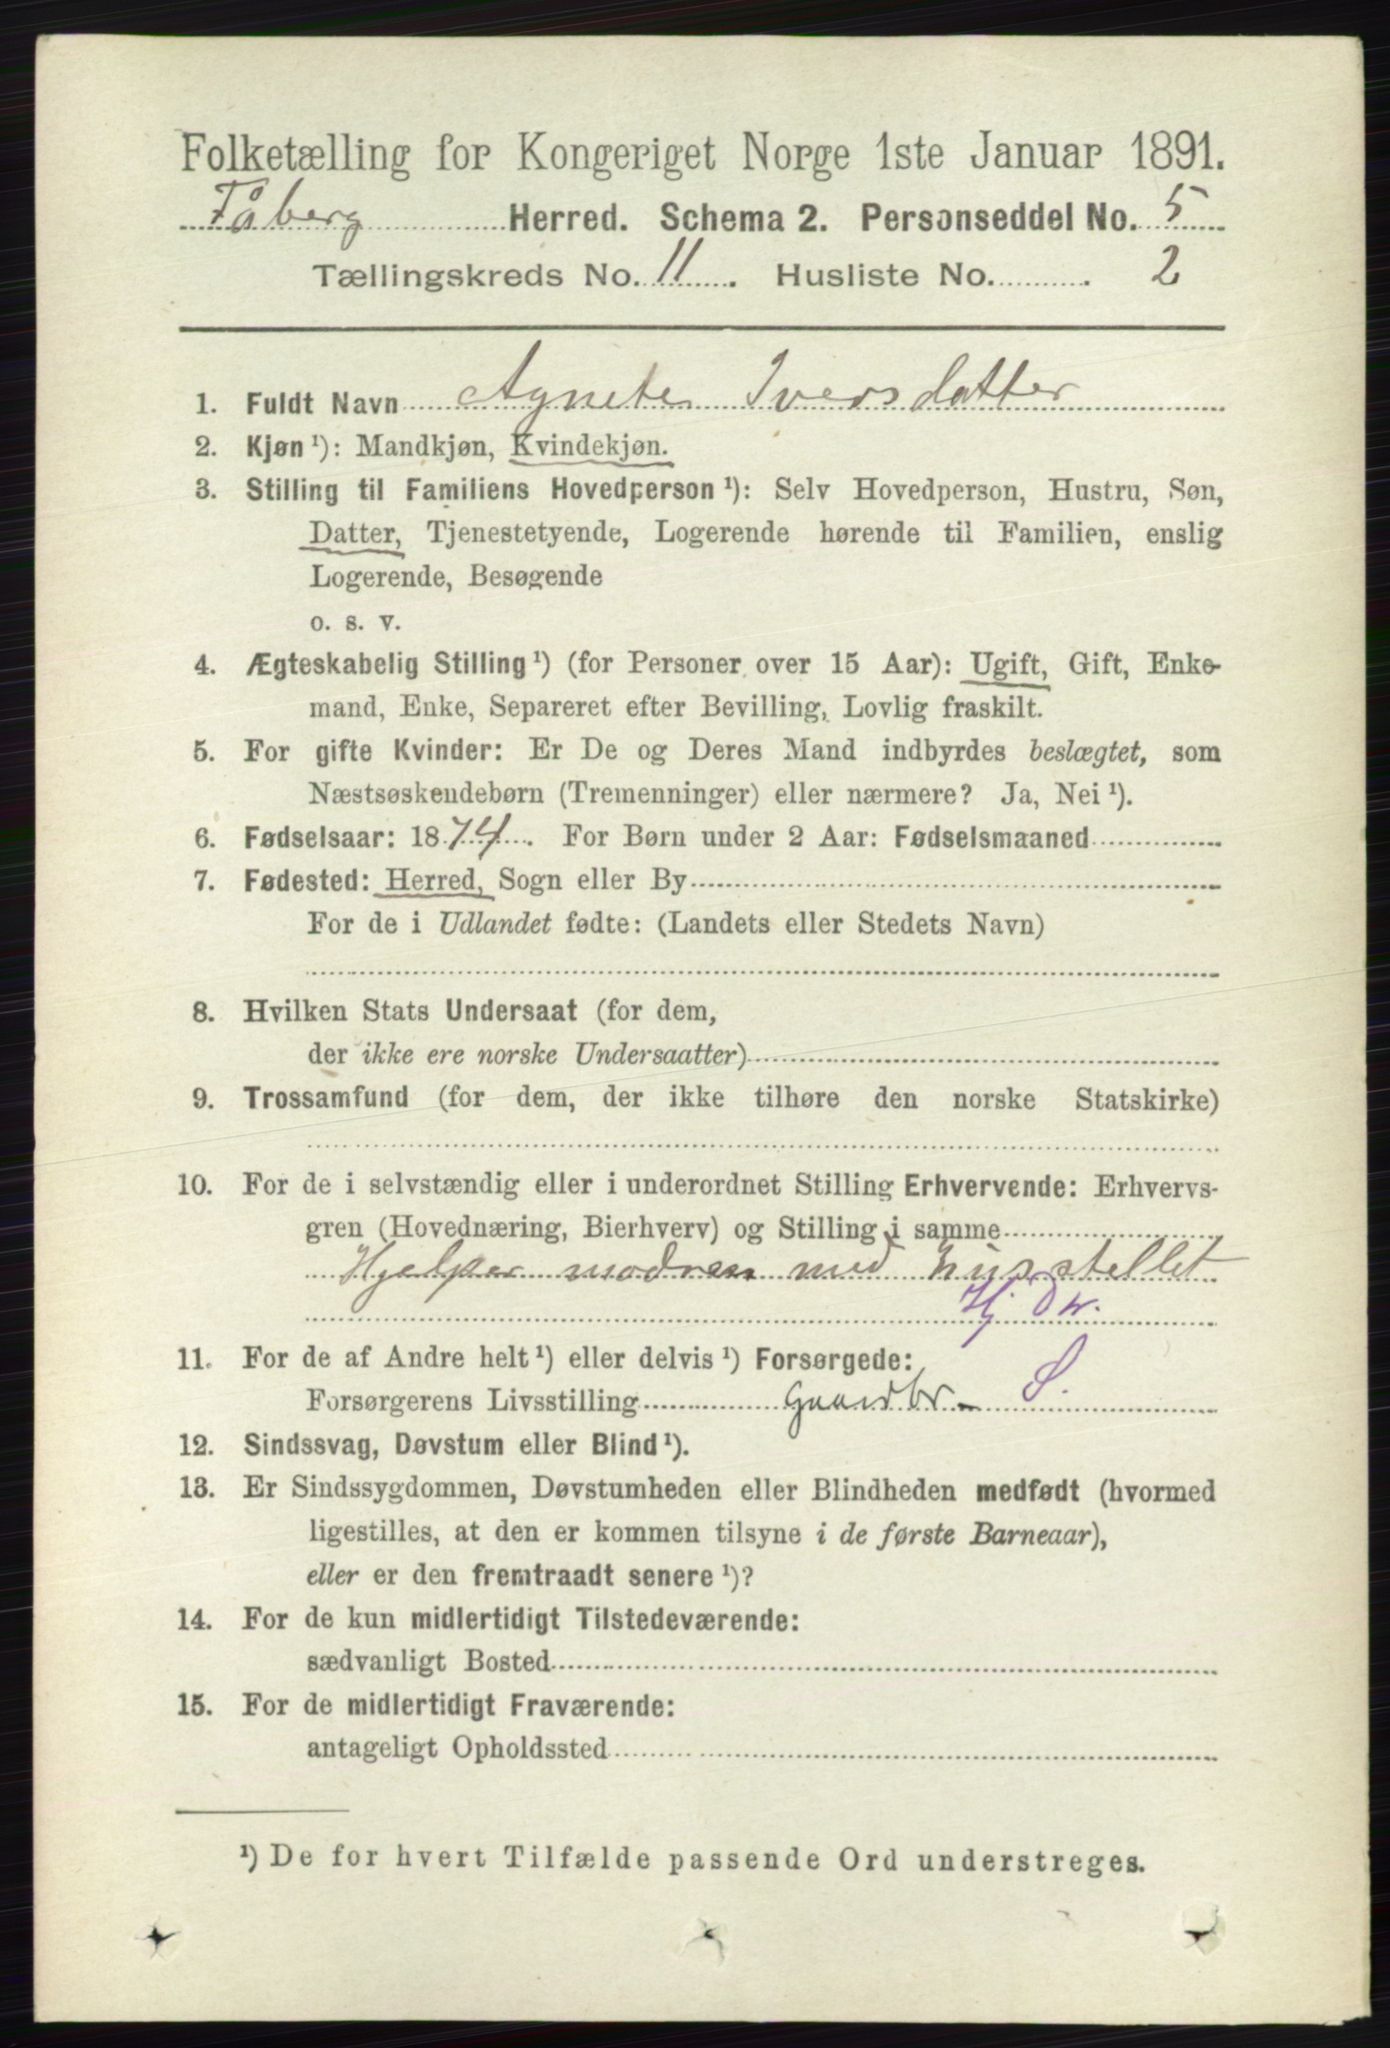 Folketælling for Kongeriget Norge 1ste Januar 1891.
Fåberg Herred. Schema 2. Personseddel No. 5
Tællingskreds No. 11. Husliste No. 2
1. Fuldt Navn Agnete Iversdatter
2. Kjøn¹): Mandkjøn, Kvindekjøn.
3. Stilling til Familiens Hovedperson¹): Selv Hovedperson, Hustru, Søn,
Datter, Tjenestetyende, Logerende hørende til Familien, enslig
Logerende, Besøgende
o. s. v.
4. Ægteskabelig Stilling¹) (for Personer over 15 Aar): Ugift, Gift, Enke-
mand, Enke, Separeret efter Bevilling, Lovlig fraskilt.
5. For gifte Kvinder: Er De og Deres Mand indbyrdes beslægtet, som
Næstsøskendebørn (Tremenninger) eller nærmere? Ja, Nei¹).
6. Fødselsaar: 1874. For Børn under 2 Aar: Fødselsmaaned
7. Fødested: Herred, Sogn eller By
For de i Udlandet fødte: (Landets eller Stedets Navn)
8. Hvilken Stats Undersaat (for dem,
der ikke ere norske Undersaatter)
9. Trossamfund (for dem, der ikke tilhøre den norske Statskirke)
10. For de i selvstændig eller i underordnet Stilling Erhvervende: Erhvervs-
gren (Hovednæring, Bierhverv) og Stilling i samme
Hjelper modren med husstellet
Hj
11. For de af Andre helt¹) eller delvis¹) Forsørgede:
Forsørgerens Livsstilling Gaardbr. S.
12. Sindssvag, Døvstum eller Blind¹).
13. Er Sindssygdommen, Døvstumheden eller Blindheden medfødt (hvormed
ligestilles, at den er kommen tilsyne i de første Barneaar),
eller er den fremtraadt senere¹)?
14. For de kun midlertidigt Tilstedeværende:
sædvanligt Bosted
15. For de midlertidigt Fraværende:
antageligt Opholdssted
¹) De for hvert Tilfælde passende Ord understreges.